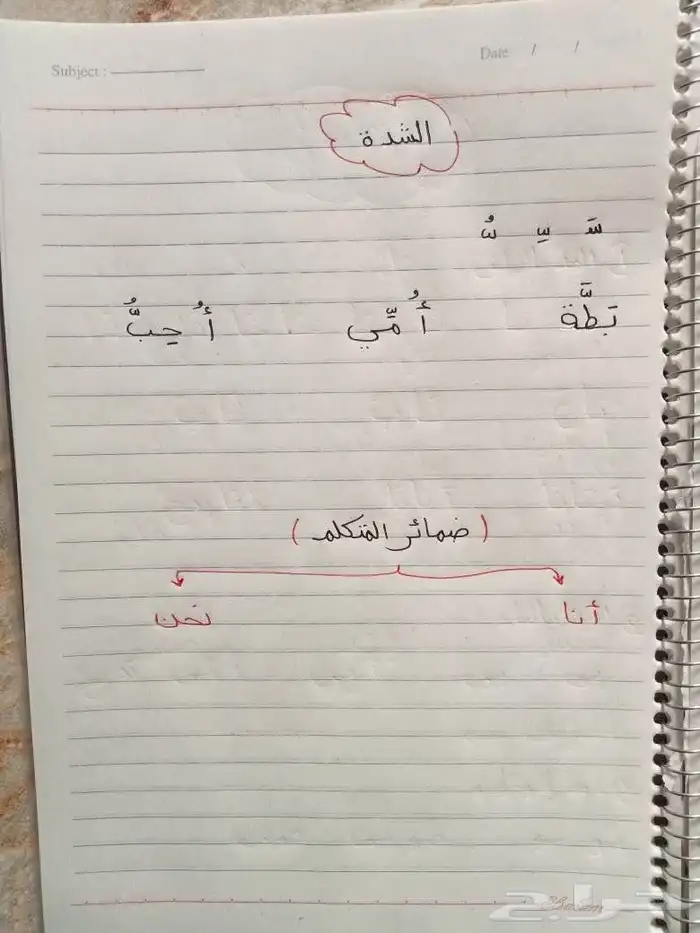 Subject :
Date / /
الشدة
ـَّ ـِّ ـُّ
بَطَّة أُمِّي أُحِبُّ
( ضمائر المتكلم )
أنا نحن
حراج